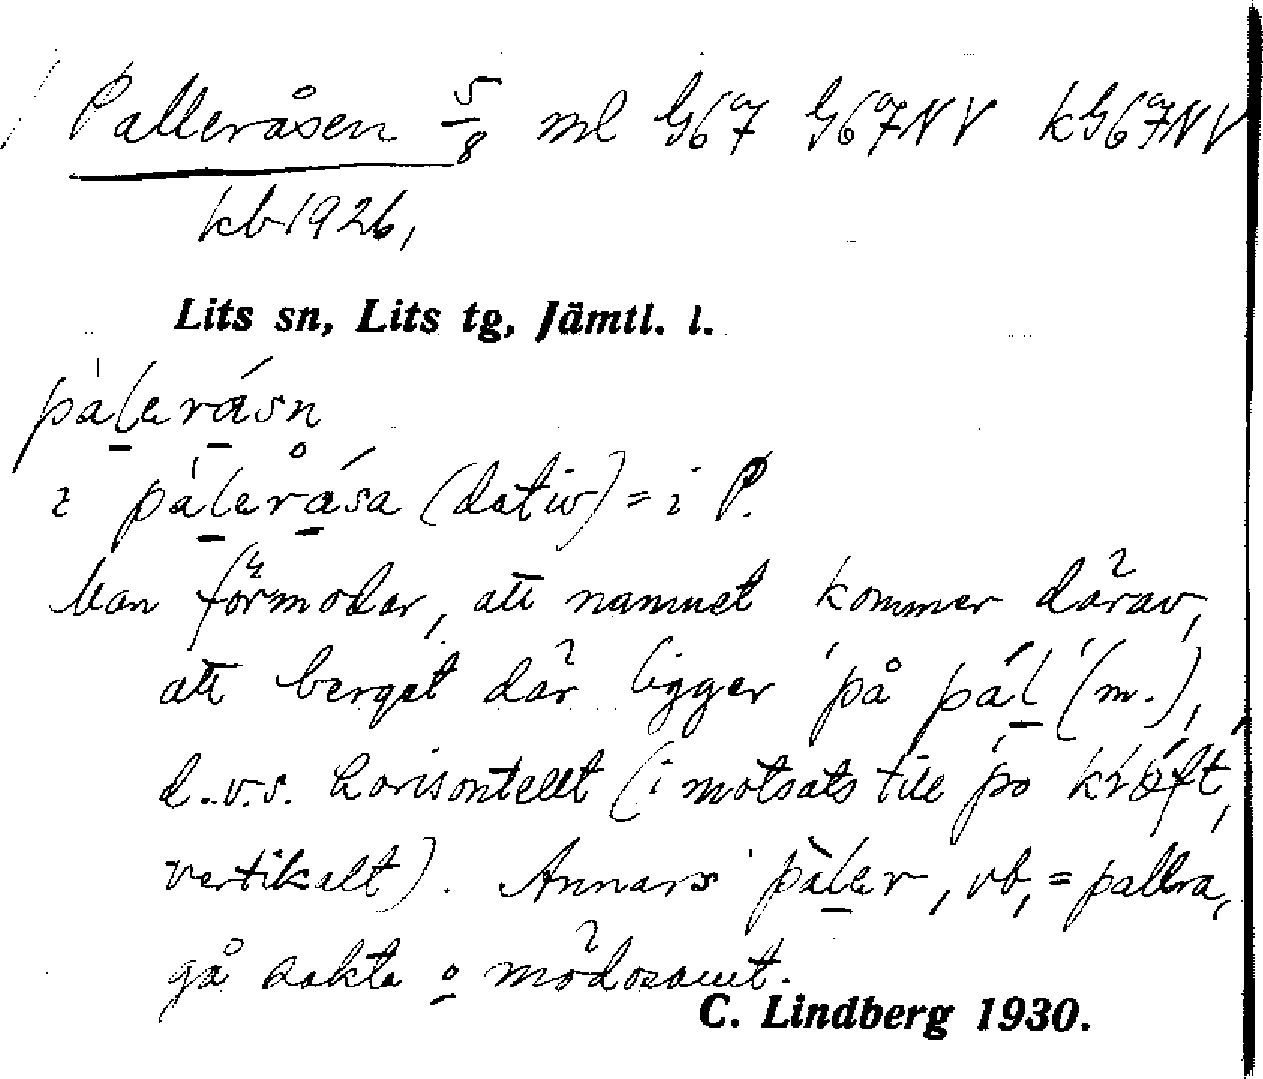 Palleråsen 5/8 ml G67 G67NV kG67NV
kb 1926,
Lits sn, Lits tg, Jämtl. l.
pàleråsn
i pàleråsa (dativ) = i P.
Man förmodar, att namnet kommer därav,
att berget där ligger på pál (m.),
d.v.s. horisontellt (i motsats till po kræft,
vertikalt). Annars pàler, vb, = pallra,
gå sakta o mödosamt.
C. Lindberg 1930.